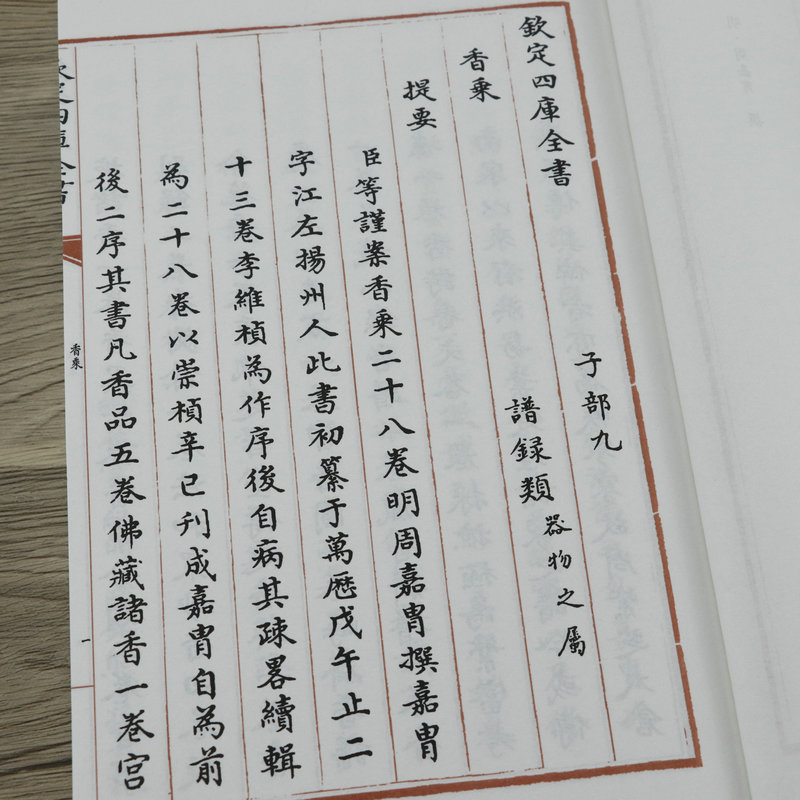 欽定四庫全書 子部九
香乘 譜録類 器物之屬
提要
臣等謹案香乘二十八卷明周嘉胄撰嘉胄
字江左揚州人此書初纂于萬厯戊午止二
十三卷李維楨為作序後自病其疎畧續輯
為二十八卷以崇楨辛已刋成嘉胄自為前
後二序其書凡香品五卷佛藏諸香一卷宫
欽定四庫全書
香乘
一